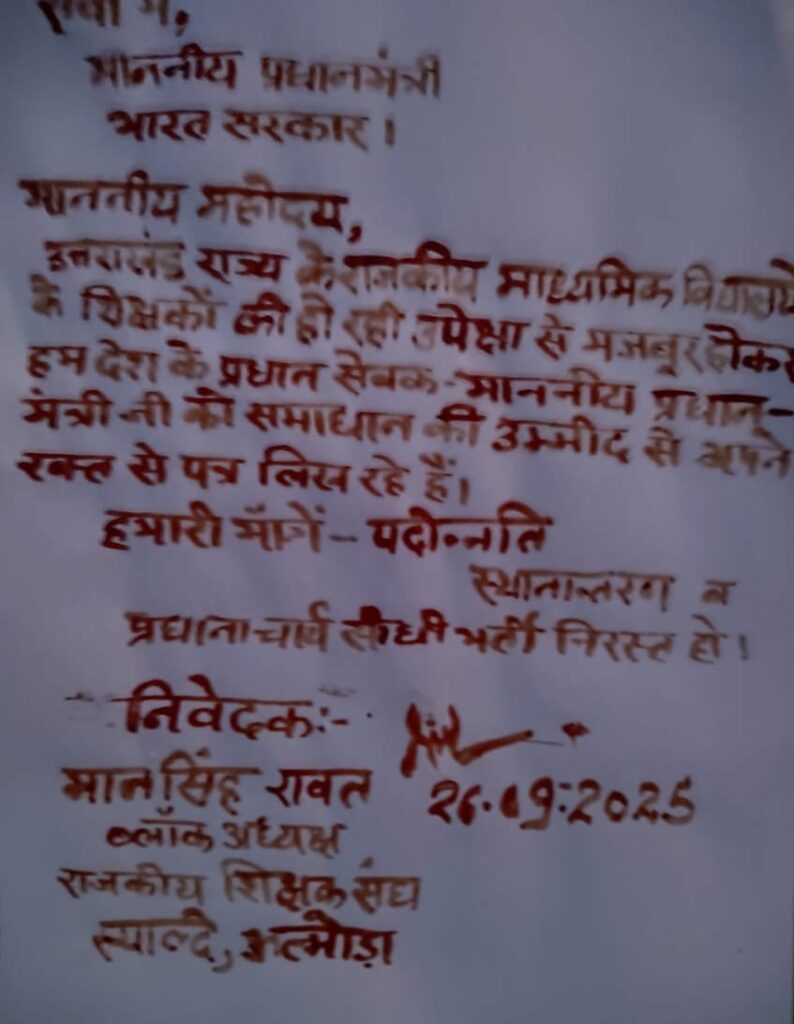 सेवा में,
माननीय प्रधानमंत्री
भारत सरकार।
माननीय महोदय,
उत्तराखंड राज्य के राजकीय माध्यमिक विद्यालयो
के शिक्षकों की हो रही उपेक्षा से मजबूर होकर
हम देश के प्रधान सेवक - माननीय प्रधान-
मंत्री जी को समाधान की उम्मीद से अपने
रक्त से पत्र लिख रहे हैं।
हमारी माँगें - पदोन्नति
स्थानान्तरण व
प्रधानाचार्य सीधी भर्ती निरस्त हो।
निवेदक:-
मान सिंह रावत 26.09.2025
ब्लॉक अध्यक्ष
राजकीय शिक्षक संघ
स्याल्दे, अल्मोड़ा